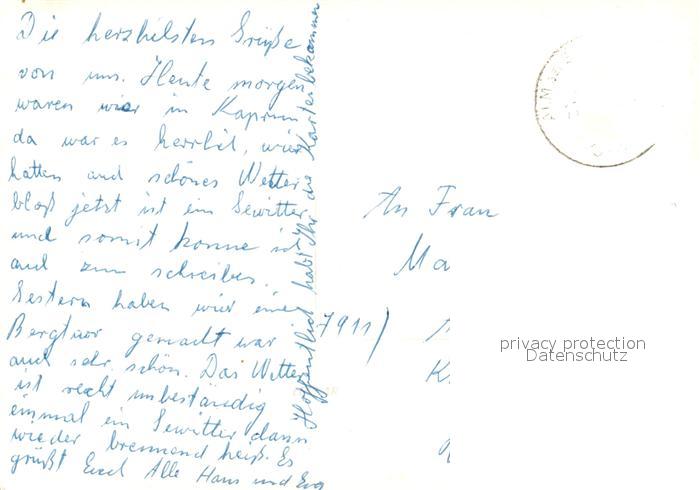 Die herzhilsten Grüße
von uns. Heute morgen
waren wier in Kaprun
da war es herrlit, wier
hatten auch schönes Wetter
bloß jetzt ist ein Gewitter
und somit konne ich
auch zum schreiben.
Gestern haben wier eine
Bergtuor gemacht war
auch sehr schön. Das Wetter
ist recht unbeständig
einmal ein Gewitter dann
wieder brennend heiß. Es
grüßt Euch Alle Hans und Eva
Hoffentlich habt Ihr die Karten bekommen
An Frau
Ma
7911)
K.
privacy protection
Datenschutz